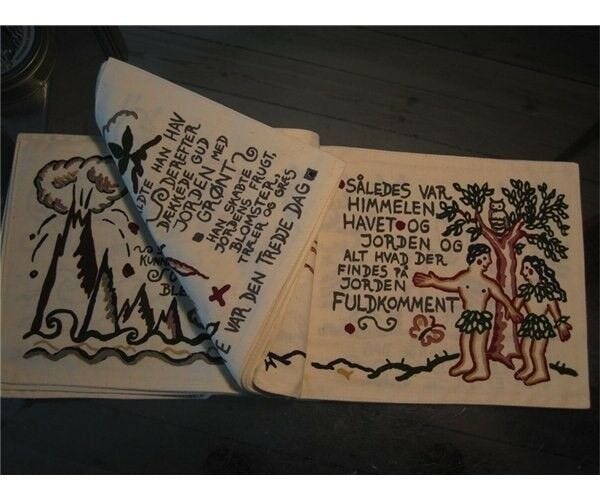 KUNN
BLE
HAN HAV
DEREFTER
DÆKKEDE GUD
JORDEN MED
GRØNT
HAN SKABTE
JORDENS FRUGT.
BLOMSTER.
TRÆER OG GRÆS
VAR DEN TREDJE DAG
SÅLEDES VAR
HIMMELEN
HAVET OG
JORDEN OG
ALT HVAD DER
FINDES PÅ
JORDEN
FULDKOMMENT